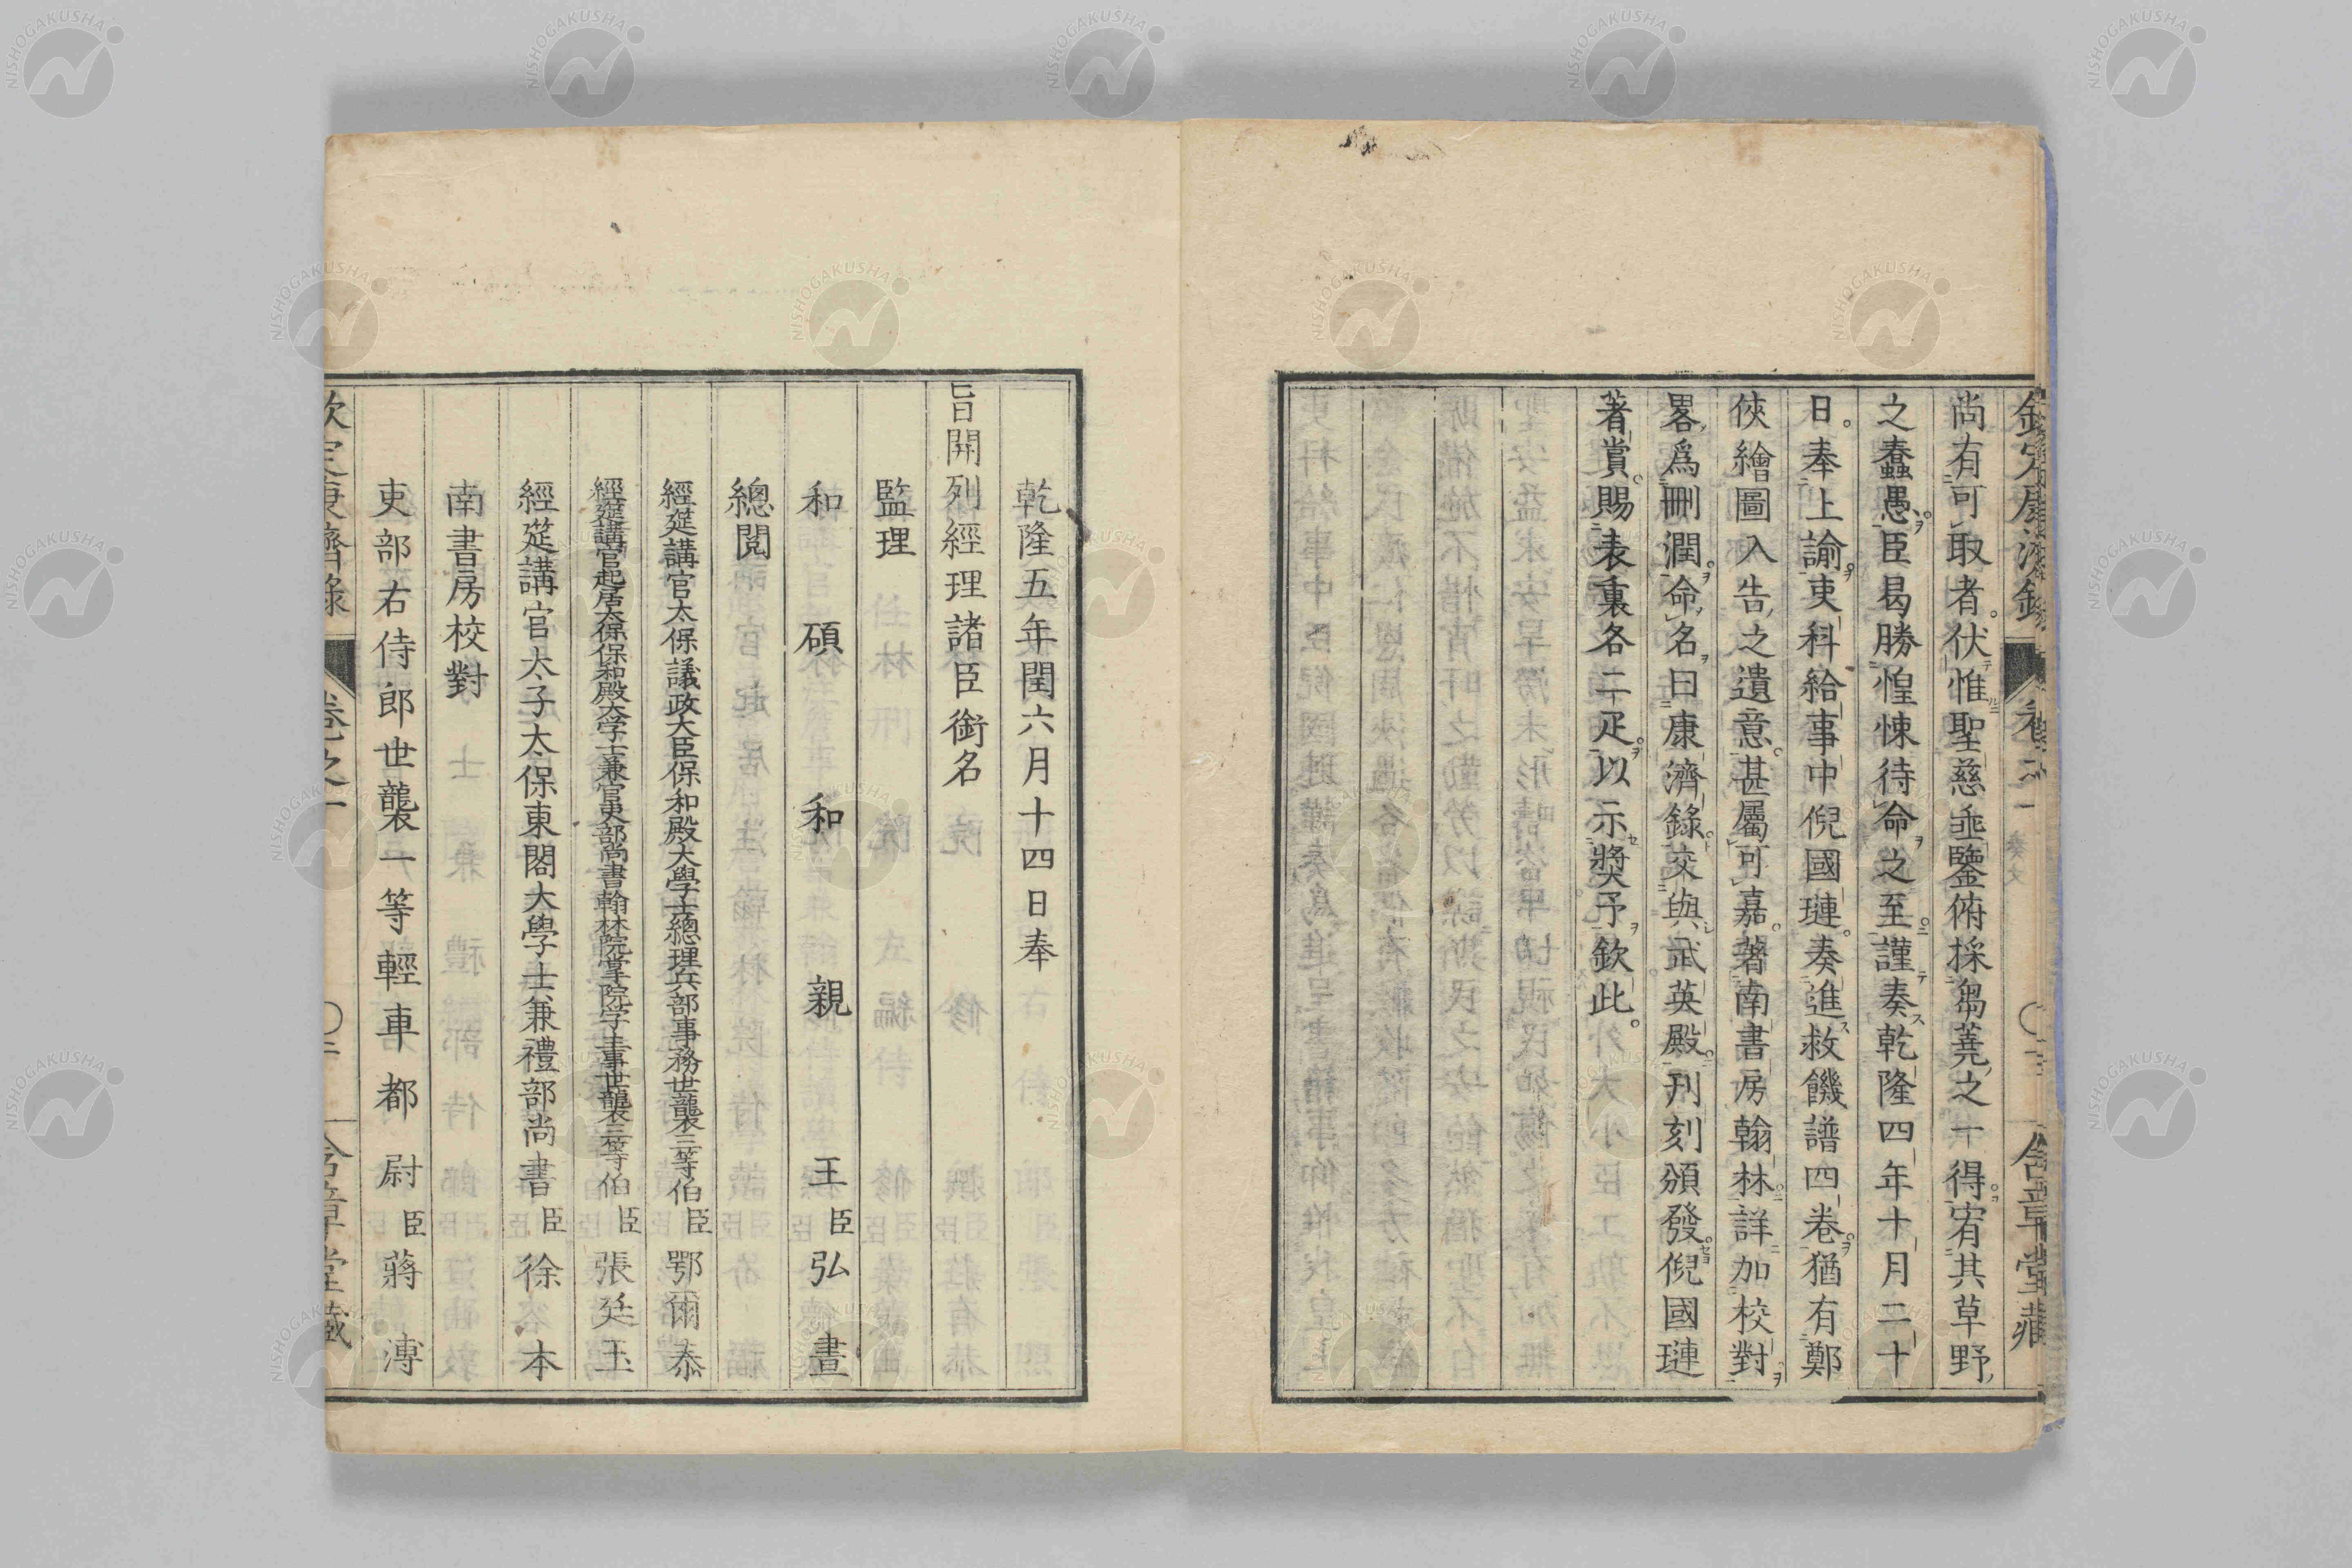 尚有可取者。伏惟聖慈垂鑒俯採芻蕘之一得宥其草野
之蠢愚。臣曷勝惶悚待命之至謹奏乾隆四年十月二十
日。奉上諭。吏科給事中倪國璉。奏進救饑譜四卷。猶有鄭
俠繪圖入告之遺意。甚屬可嘉。著南書房翰林。詳加校對
畧爲刪潤。命名曰康濟錄。交與武英殿。刊刻頒發。倪國璉
著賞。賜表裏各二疋。以示奬予欽此。
乾隆五年閏六月十四日奉
旨開列經理諸臣銜名
監理
和碩和親王臣弘晝
總閲
經筵講官太保議政大臣保和殿大學士總理兵部事務世襲三等伯臣鄂爾泰
經筵講官起居太保保和殿大学士兼官吏部尚書翰林院掌院学士事世襲三等伯臣張廷玉
經筵講官太子太保東閣大學士兼禮部尚書臣徐本
南書房校對
吏部右侍郎世襲一等輕車都尉臣蔣溥
欽定康濟錄 卷之一 含章堂藏
NISHOGAKUSHA